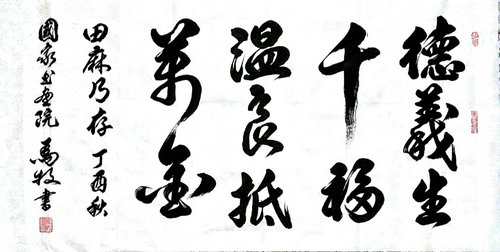 德義生
千福
温良抵
萬金
田麻乃存 丁酉秋
國家书畫院 馬牧書